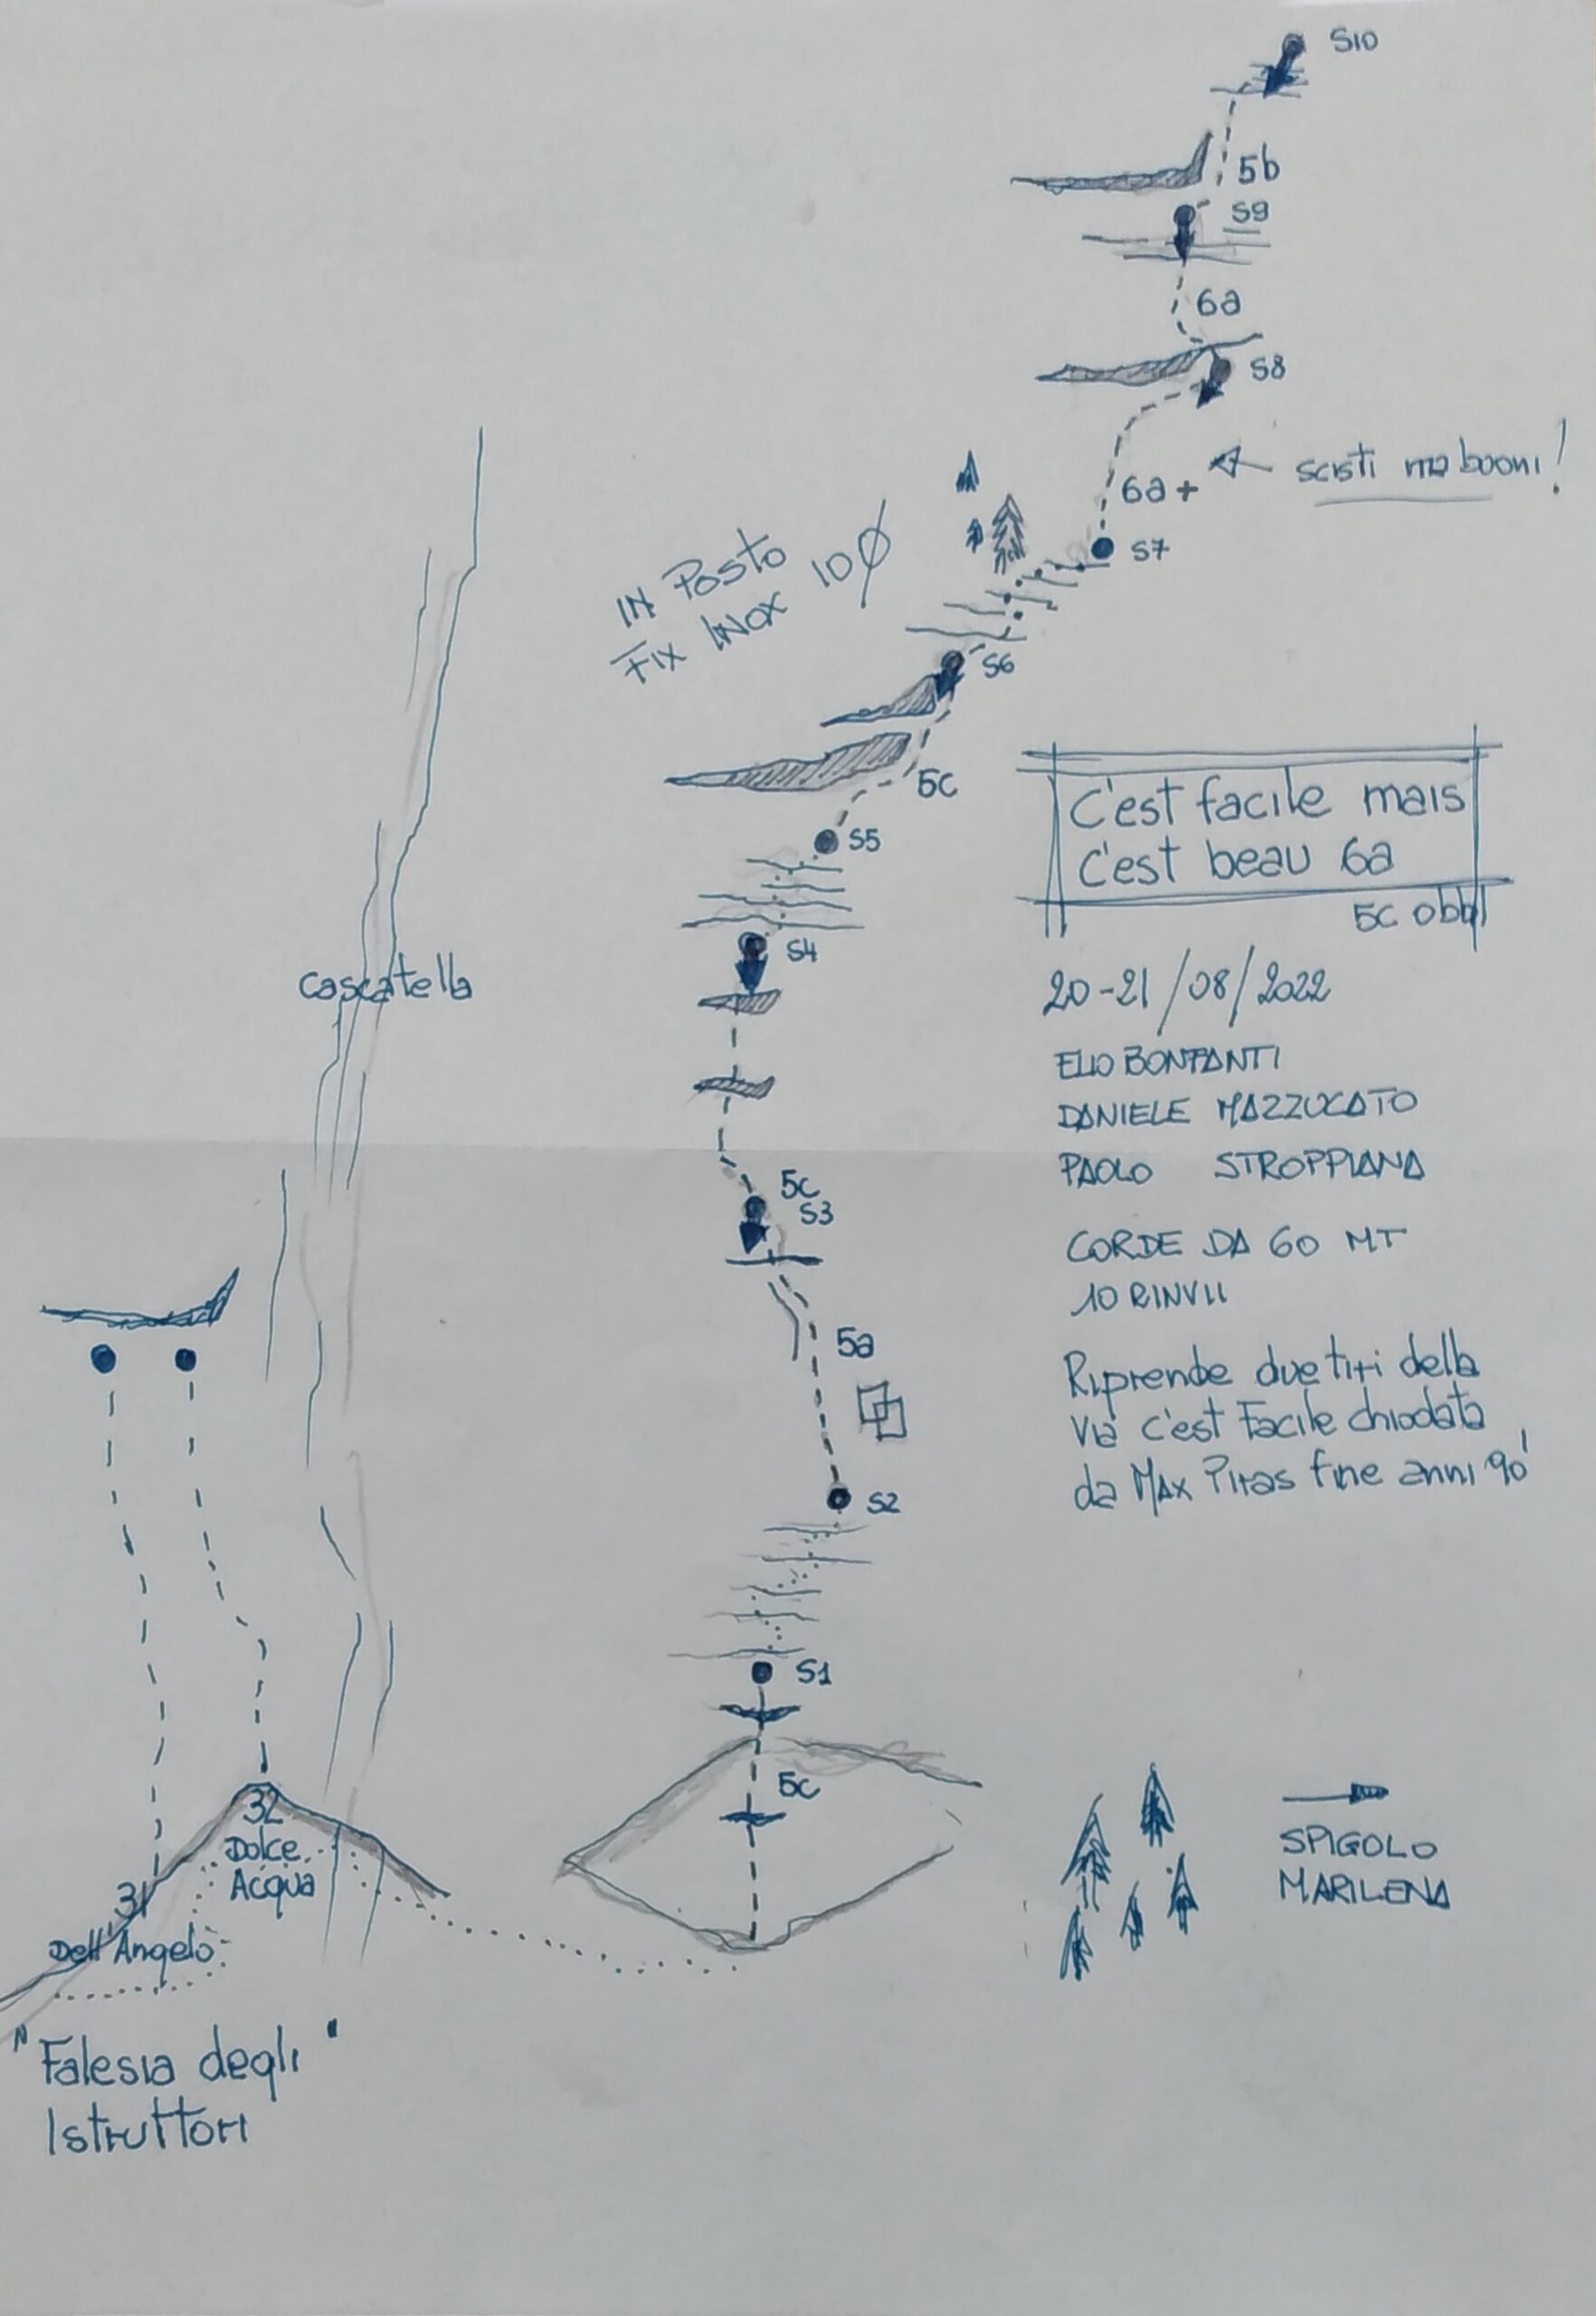 S10
5b
S9
6a
S8
scisti ma buoni!
6a+
S7
IN Posto
Fix INOX 10 Ø
S6
5c
S5
C'est facile mais
C'est beau 6a
5c obbl
S4
cascatella
20-21/08/2022
ELIO BONFANTI
DANIELE MAZZUCATO
PAOLO STROPPIANA
5c
S3
CORDE DA 60 MT
10 RINVII
5a
Riprende due tiri della
via c'est Facile chiodata
da Max Piras fine anni 90'
S2
S1
5c
32
Dolce
Acqua
31
Dell'Angelo
SPIGOLO
MARILENA
"Falesia degli"
Istruttori